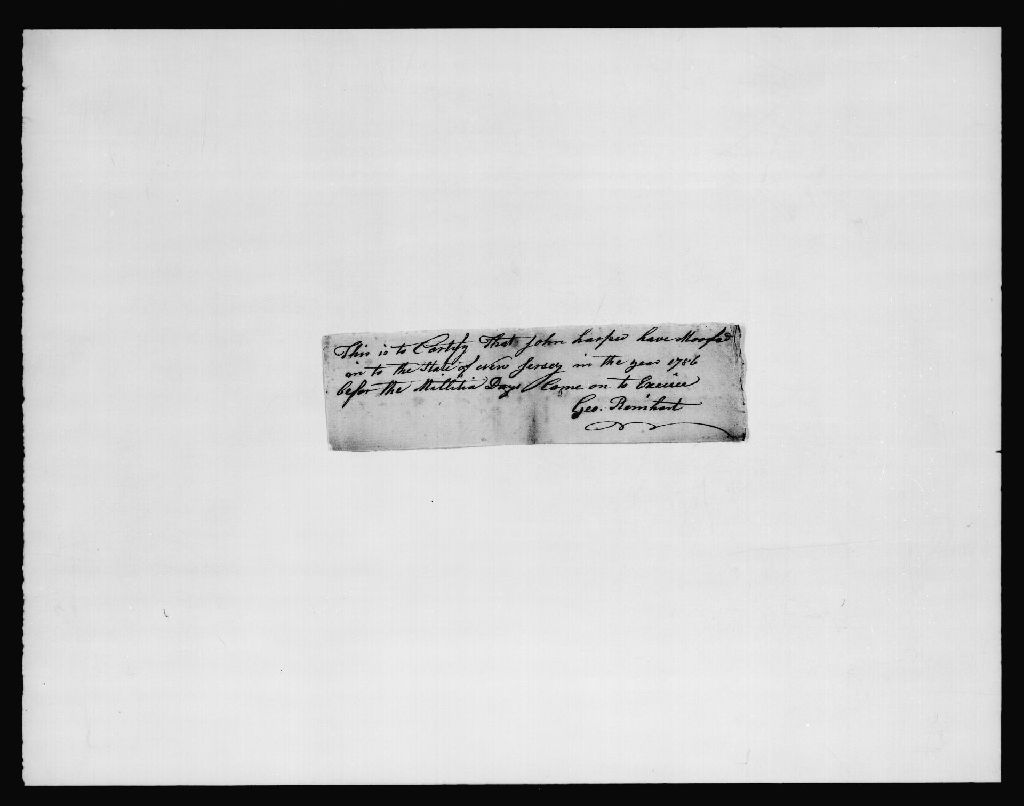 This is to Cartify That John harper have Moofed
in to the State of new Jersey in the year 1786
befor the Millitia Days Came on to Exercice
Geo. Reinhart